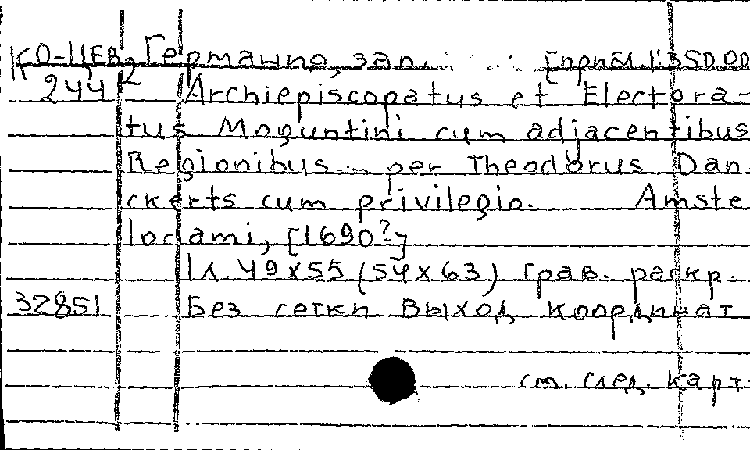 КО-Ц,ЕВ 2 Германия, зап. [прибл. 1:350.00
244 Archiepiscopatus et Electora-
tus Moguntini cum adjacentibus
Regionibus... per Theodorus Dan
ckerts cum privilegio. Amste
lodami, [1690?]
1 л. 49x55 (54x63) Грав. раскр.
32851 Без сетки Выход координат
см. след. карт